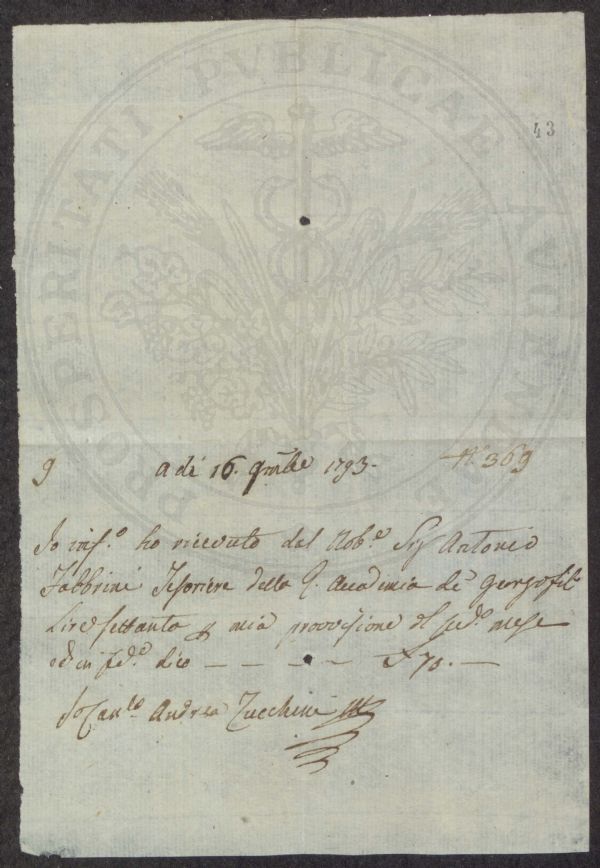 PROSPERITATI PVBLICAE AVGENDAE
43
9 Adi 16. 9mbre 1793. N.º 369
Io inf.º ho ricevuto dal Nob.e Sig Antonio
Fabbrini Tesoriere della R. Accademia de Gergofili
Lire settanta p mia provvisione del sud.º mese
ed in fed.e dico — — — — £ 70. —
Io Can.co Andrea Zucchini